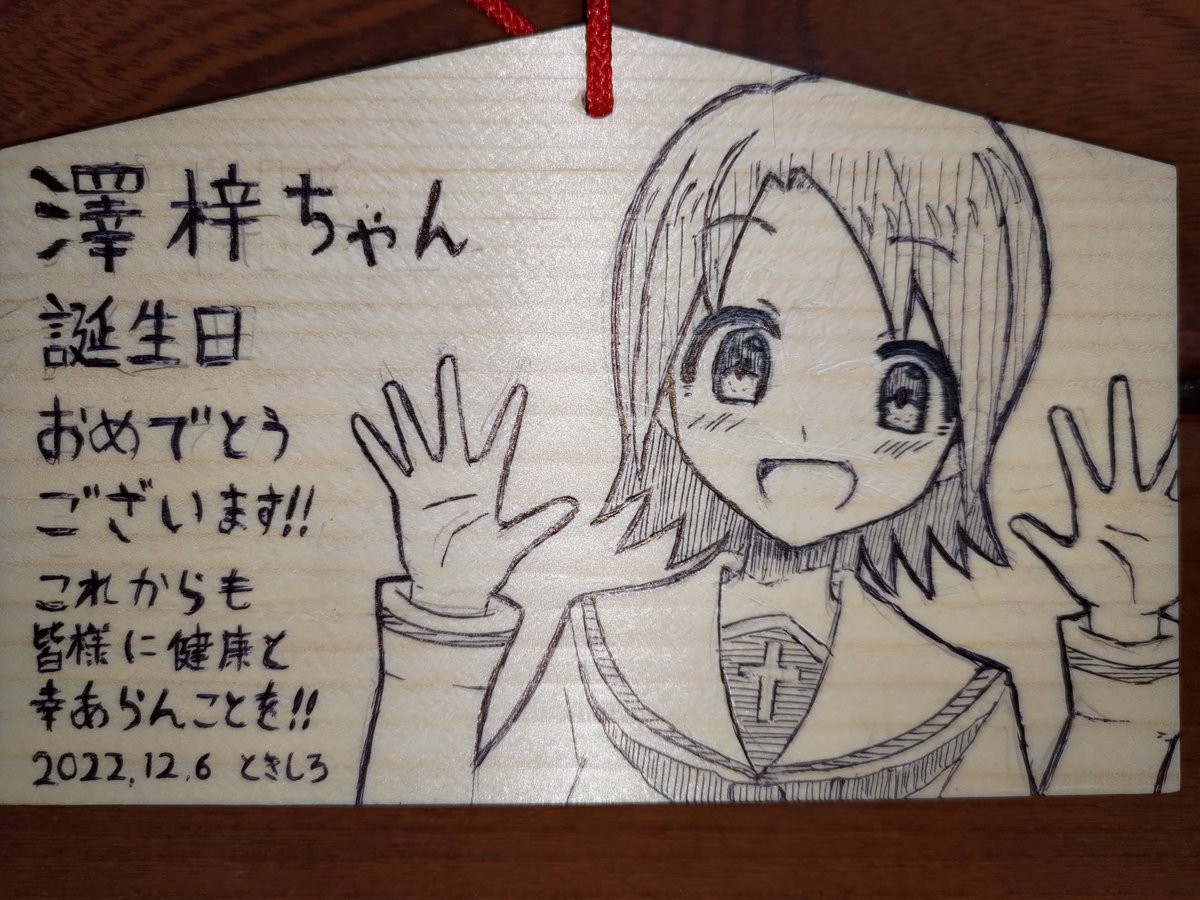 澤梓ちゃん
誕生日
おめでとう
ございます!!
これからも
皆様に健康と
幸あらんことを!!
2022.12.6 ときしろ